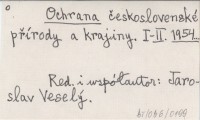 Ochrana československé
přírody a krajiny. I-II. 1954...
Red. i współautor: Jaro-
slav Veselý.